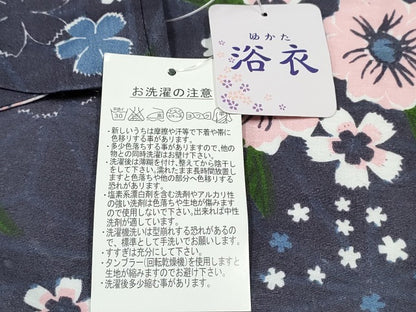 ゆかた
浴衣
お洗濯の注意
・新しいうちは摩擦や汗等で下着や帯に
色移りする事があります。
・多少色落ちする事がありますので、他の
物との同時洗濯はお避け下さい。
・洗濯後は薄糊を付け、整えてから陰干し
をして下さい。濡れたまま長時間放置し
ますと色落ちや他の部分へ色移りする
恐れがあります。
・塩素系漂白剤を含む洗剤やアルカリ性
の強い洗剤は色落ちや生地が傷みます
ので使用しないで下さい。出来れば中性
洗剤が適しています。
・洗濯機洗いは型崩れする恐れがあるの
で、標準として手洗いでお願いします。
・すすぎは充分にして下さい。
・タンブラー(回転乾燥機)を使用しますと
生地が縮みますのでお避け下さい。
・洗濯後多少縮む事があります。